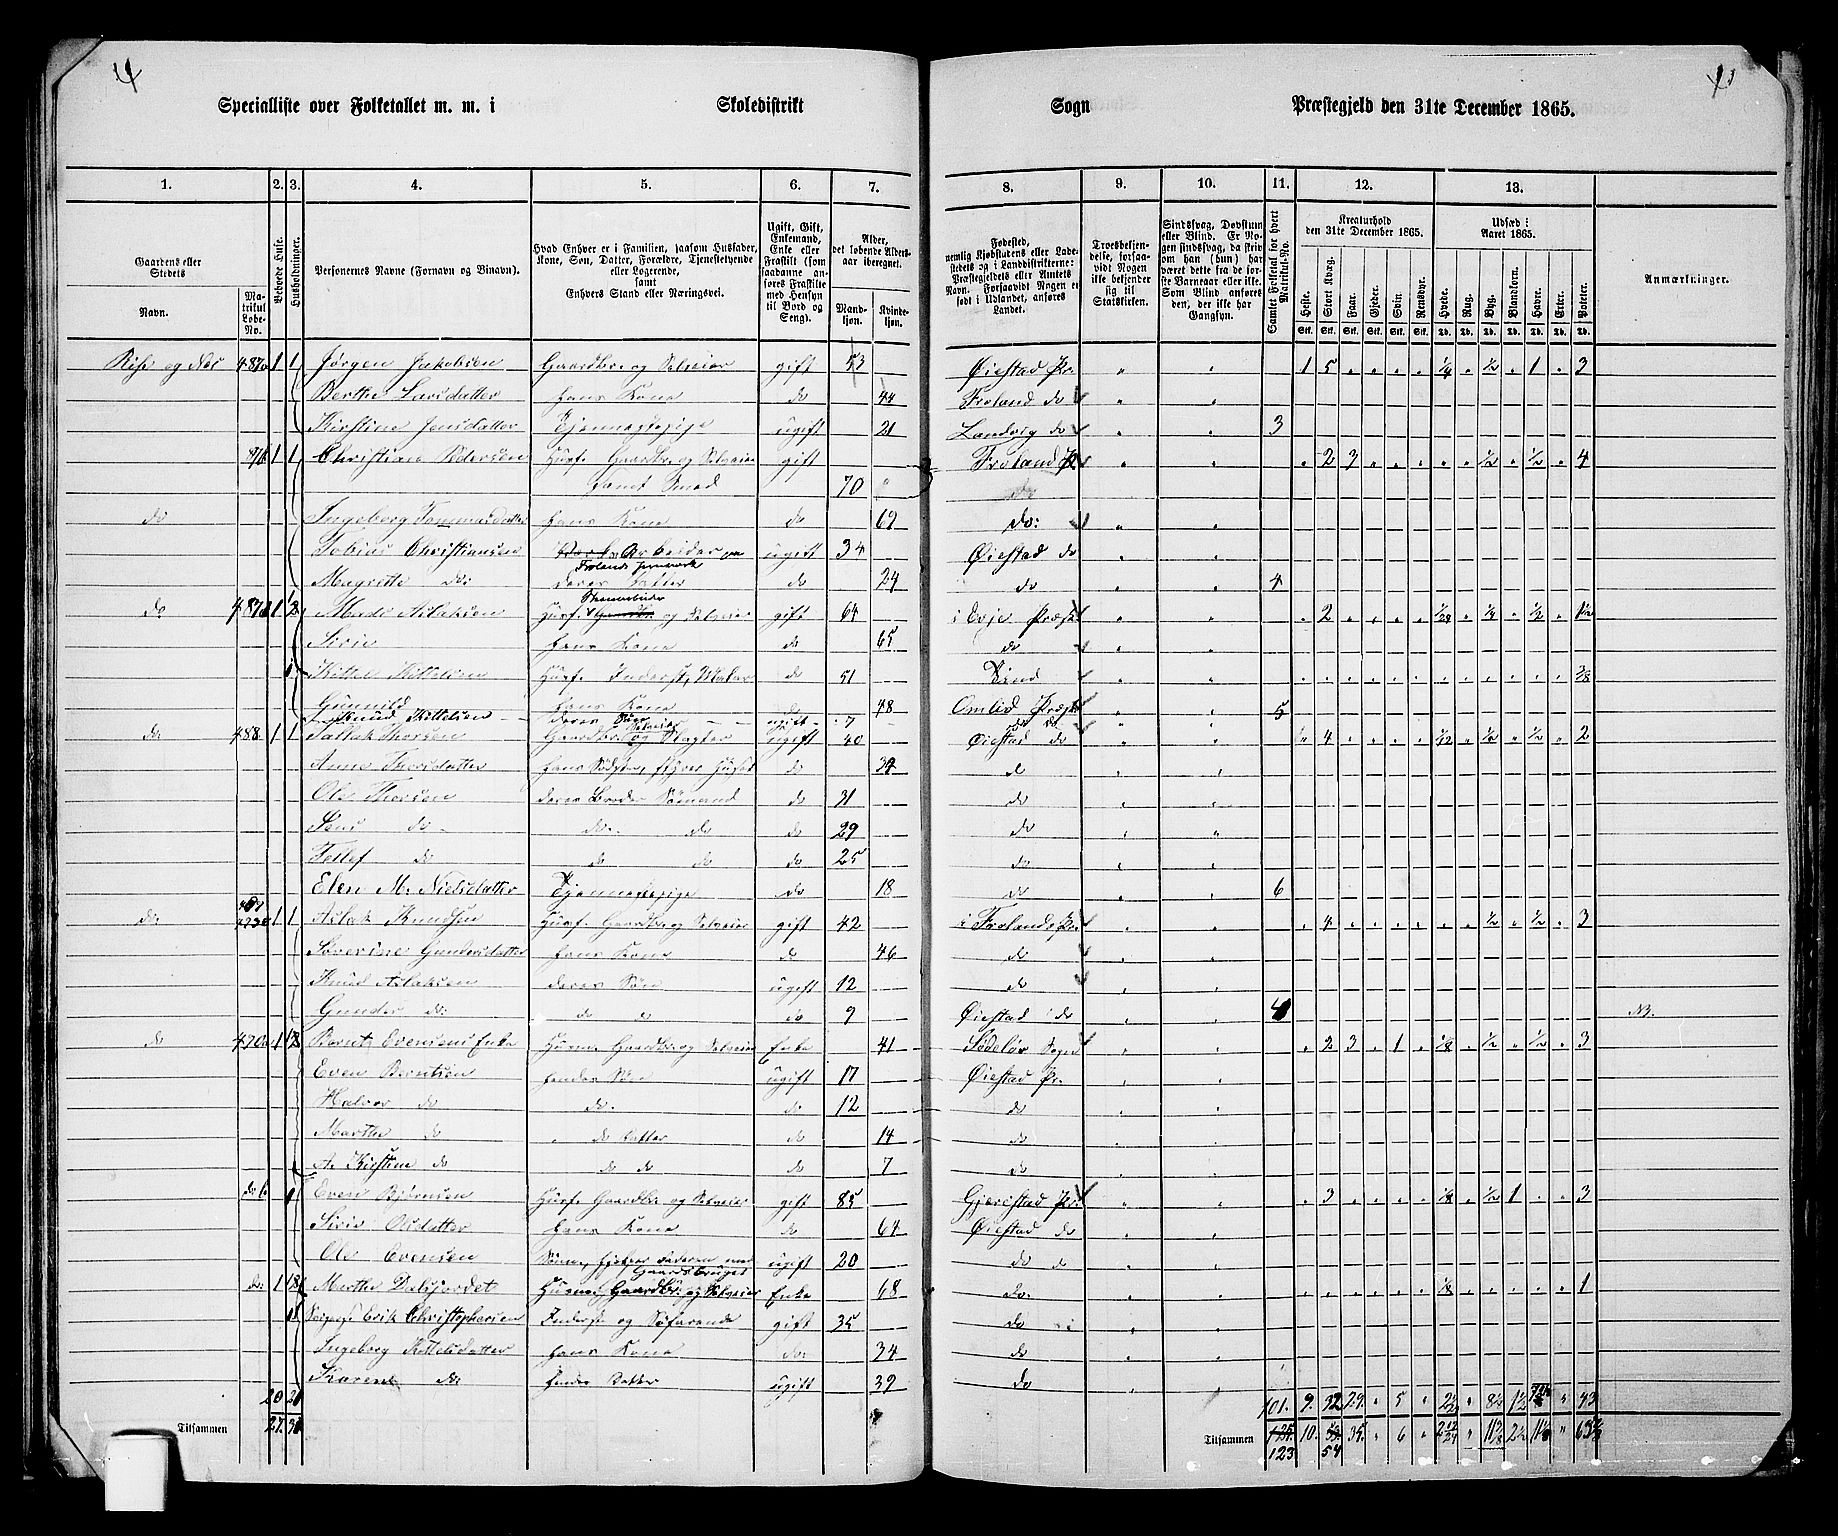 4
Specialliste over Folketallet m. m. i Skoledistrikt Sogn Præstegjeld den 31te December 1865.
1. 2. 3. 4. 5. 6. 7. 8. 9. 10. 11. 12. 13.
Gaardens eller Stedets
Navn.
Matrikul Løbe-No.
Beboede Huse.
Husholdninger.
Personernes Navne (Fornavn og Binavn).
Hvad Enhver er i Familien, saasom Husfader, Kone, Søn, Datter, Forældre, Tjenestetyende eller Logerende, samt Enhvers Stand eller Næringsvei.
Ugift, Gift, Enkemand, Enke eller Fraskilt (som saadanne anføres Fraskilte med Hensyn til Bord og Seng).
Alder, det løbende Alders-aar iberegnet.
Mandkjøn. Kvindekjøn.
Fødested, nemlig Kjøbstadens eller Ladestedets og i Landdistrikterne: Præstegjeldets eller Amtets Navn. Forsaavidt Nogen er født i Udlandet, anføres Landet.
Troesbekjendelse, forsaavidt Nogen ikke bekjender sig til Statskirken.
Sindssvag, Døvstum eller Blind. Er Nogen sindssvag, da skrives om han (hun) har været dette fra de første Barneaar eller ikke. Som Blind anføres den, der ikke har Gangsyn.
Samlet Folketal for hvert Matrikul-No.
Kreaturhold den 31te December 1865.
Heste. Stort Kvæg. Faar. Gjeder. Svin. Rensdyr.
Stk. Stk. Stk. Stk. Stk. Stk.
Udsæd i Aaret 1865.
Hvede. Rug. Byg. Blandkorn. Havre. Erter. Poteter.
Td. Td. Td. Td. Td. Td. Td.
Anmærkninger.
487a 1 1 Jørgen Jakobsen Gaardbr. og Selveier gift 53 Øiestad Pr. 1 5 1/4 1/2 1 3
Berthe Larsdatter hans Kone do 44 Froland do
Kirstine Jensdatter Tjennestepige ugift 21 Landvig do 3
1 1 Christiane Pedersen Husf. Gaardbr. og Selveier gift Froland Pr 2 3 1/2 1/2 4
samt Smed 70 do
do Ingeborg Tommasdatter hans Kone do 69 do:
Tobias Christiansen Arbeider paa ugift 34 Øiestad do
Frolands Jernværk
Magrethe do: deres Datter do 24 do 4
do 1 2 Mads Aslaksen Husf. og Selveier gift 64 i Evje Præst 2 1/4 1/2
Sirie hans Kone do 65 do
Kittel Kittelsen Husf. Inderst, do 51
Gunnild hans Kone do 48 Omlid Præst 5
Knud Kittelsen deres Søn ugift 7 do do
do: 488 1 1 Tallak Thorsen Gaardbr. og Selveier ugift 40 Øiestad do 4 1/12 1/2 1/2 2
Anne Thorsdatter hans Søster, do 34 do
Ole Thorsen deres Broder Sømand do 31 do
Jens do do. do do 29 do
Tellef do do do do 25 do
Elen M. Nielsdatter Tjennestepige do 18 do 6
do: 1 1 Aslak Knudsen Husf. Gaardbr. og Selveier gift 42 i Frolands Pr. 4 1/2 1/2 3
Severine Gundersdatter hans Kone do 46 do
Knud Aslaksen deres Søn ugift 12 do
Gunder do: do do do 9 Øiestad do 4 NB.
do 490a 1 Bernt Evensens Enke Husm. Gaardbr. og Selveier Enke 41 Sogn 2 3 1 1/8 1/2 1/2 3
Even Berntsen hendes Søn ugift 17 Øiestad Pr.
Halvor do do. do 12 do
Marthe do do Datter do 14 do
A. Kirstine do do do do 7 do
do b 1 Even Bjørnsen Husf. Gaardbr. og Selveier gift 85 Gjerestad Pr. 3 1/8 1/2 1 3
Sirie Olsdatter hans Kone do 64 Øiestad do
Ole Evensen Sønn, hjelper Faderen med ugift 20 do do
Gaardsbruget
do: 1 Marthe Dalsfordet Husm. Gaardbr. og Selveier Enke 68 do. 1/8 1
Erik Christophersen Inderst og Søfarende gift 35 do
Ingeborg Kittelsdatter hans Kone do: 34 do
Karen do: hendes Datter ugift 39 do
20 101. 9. 29. 5 43
Tilsammen 27. Tilsammen 125. 10. 35. 6
123 54